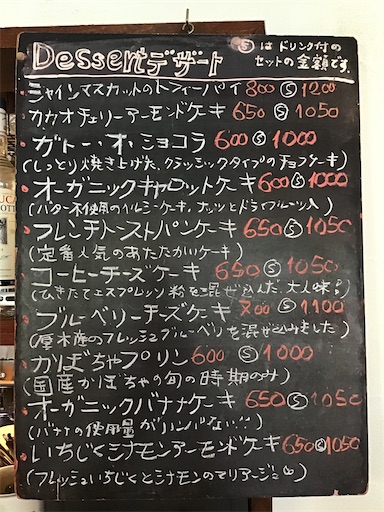 Dessertデザート
Ⓢ は ドリンク付の
セットの金額です。
シャインマスカットのトフィーパイ 800 Ⓢ 1200
カカオチェリーアーモンドケーキ 650 Ⓢ 1050
ガトー・オ・ショコラ 600 Ⓢ 1000
(しっとり焼き上げた、クラシックタイプのチョコケーキ)
オーガニックキャロットケーキ 600 Ⓢ 1000
(バター不使用のヘルシーケーキ。ナッツとドライフルーツ入)
フレンチトーストパンケーキ 650 Ⓢ 1050
(定番人気のあたたかいケーキ)
コーヒーチーズケーキ 650 Ⓢ 1050
(ひきたてエスプレッソ粉を混ぜ込んだ、大人味!)
ブルーベリーチーズケーキ 700 Ⓢ 1100
(厚木産のフレッシュブルーベリーを混ぜ込みました)
かぼちゃプリン 600 Ⓢ 1000
(国産かぼちゃの旬の時期のみ)
オーガニックバナナケーキ 650 Ⓢ 1050
(バナナの使用量がハンパない!!)
いちじくシナモンアーモンドケーキ 650 Ⓢ 1050
(フレッシュいちじくとシナモンのマリアージュ